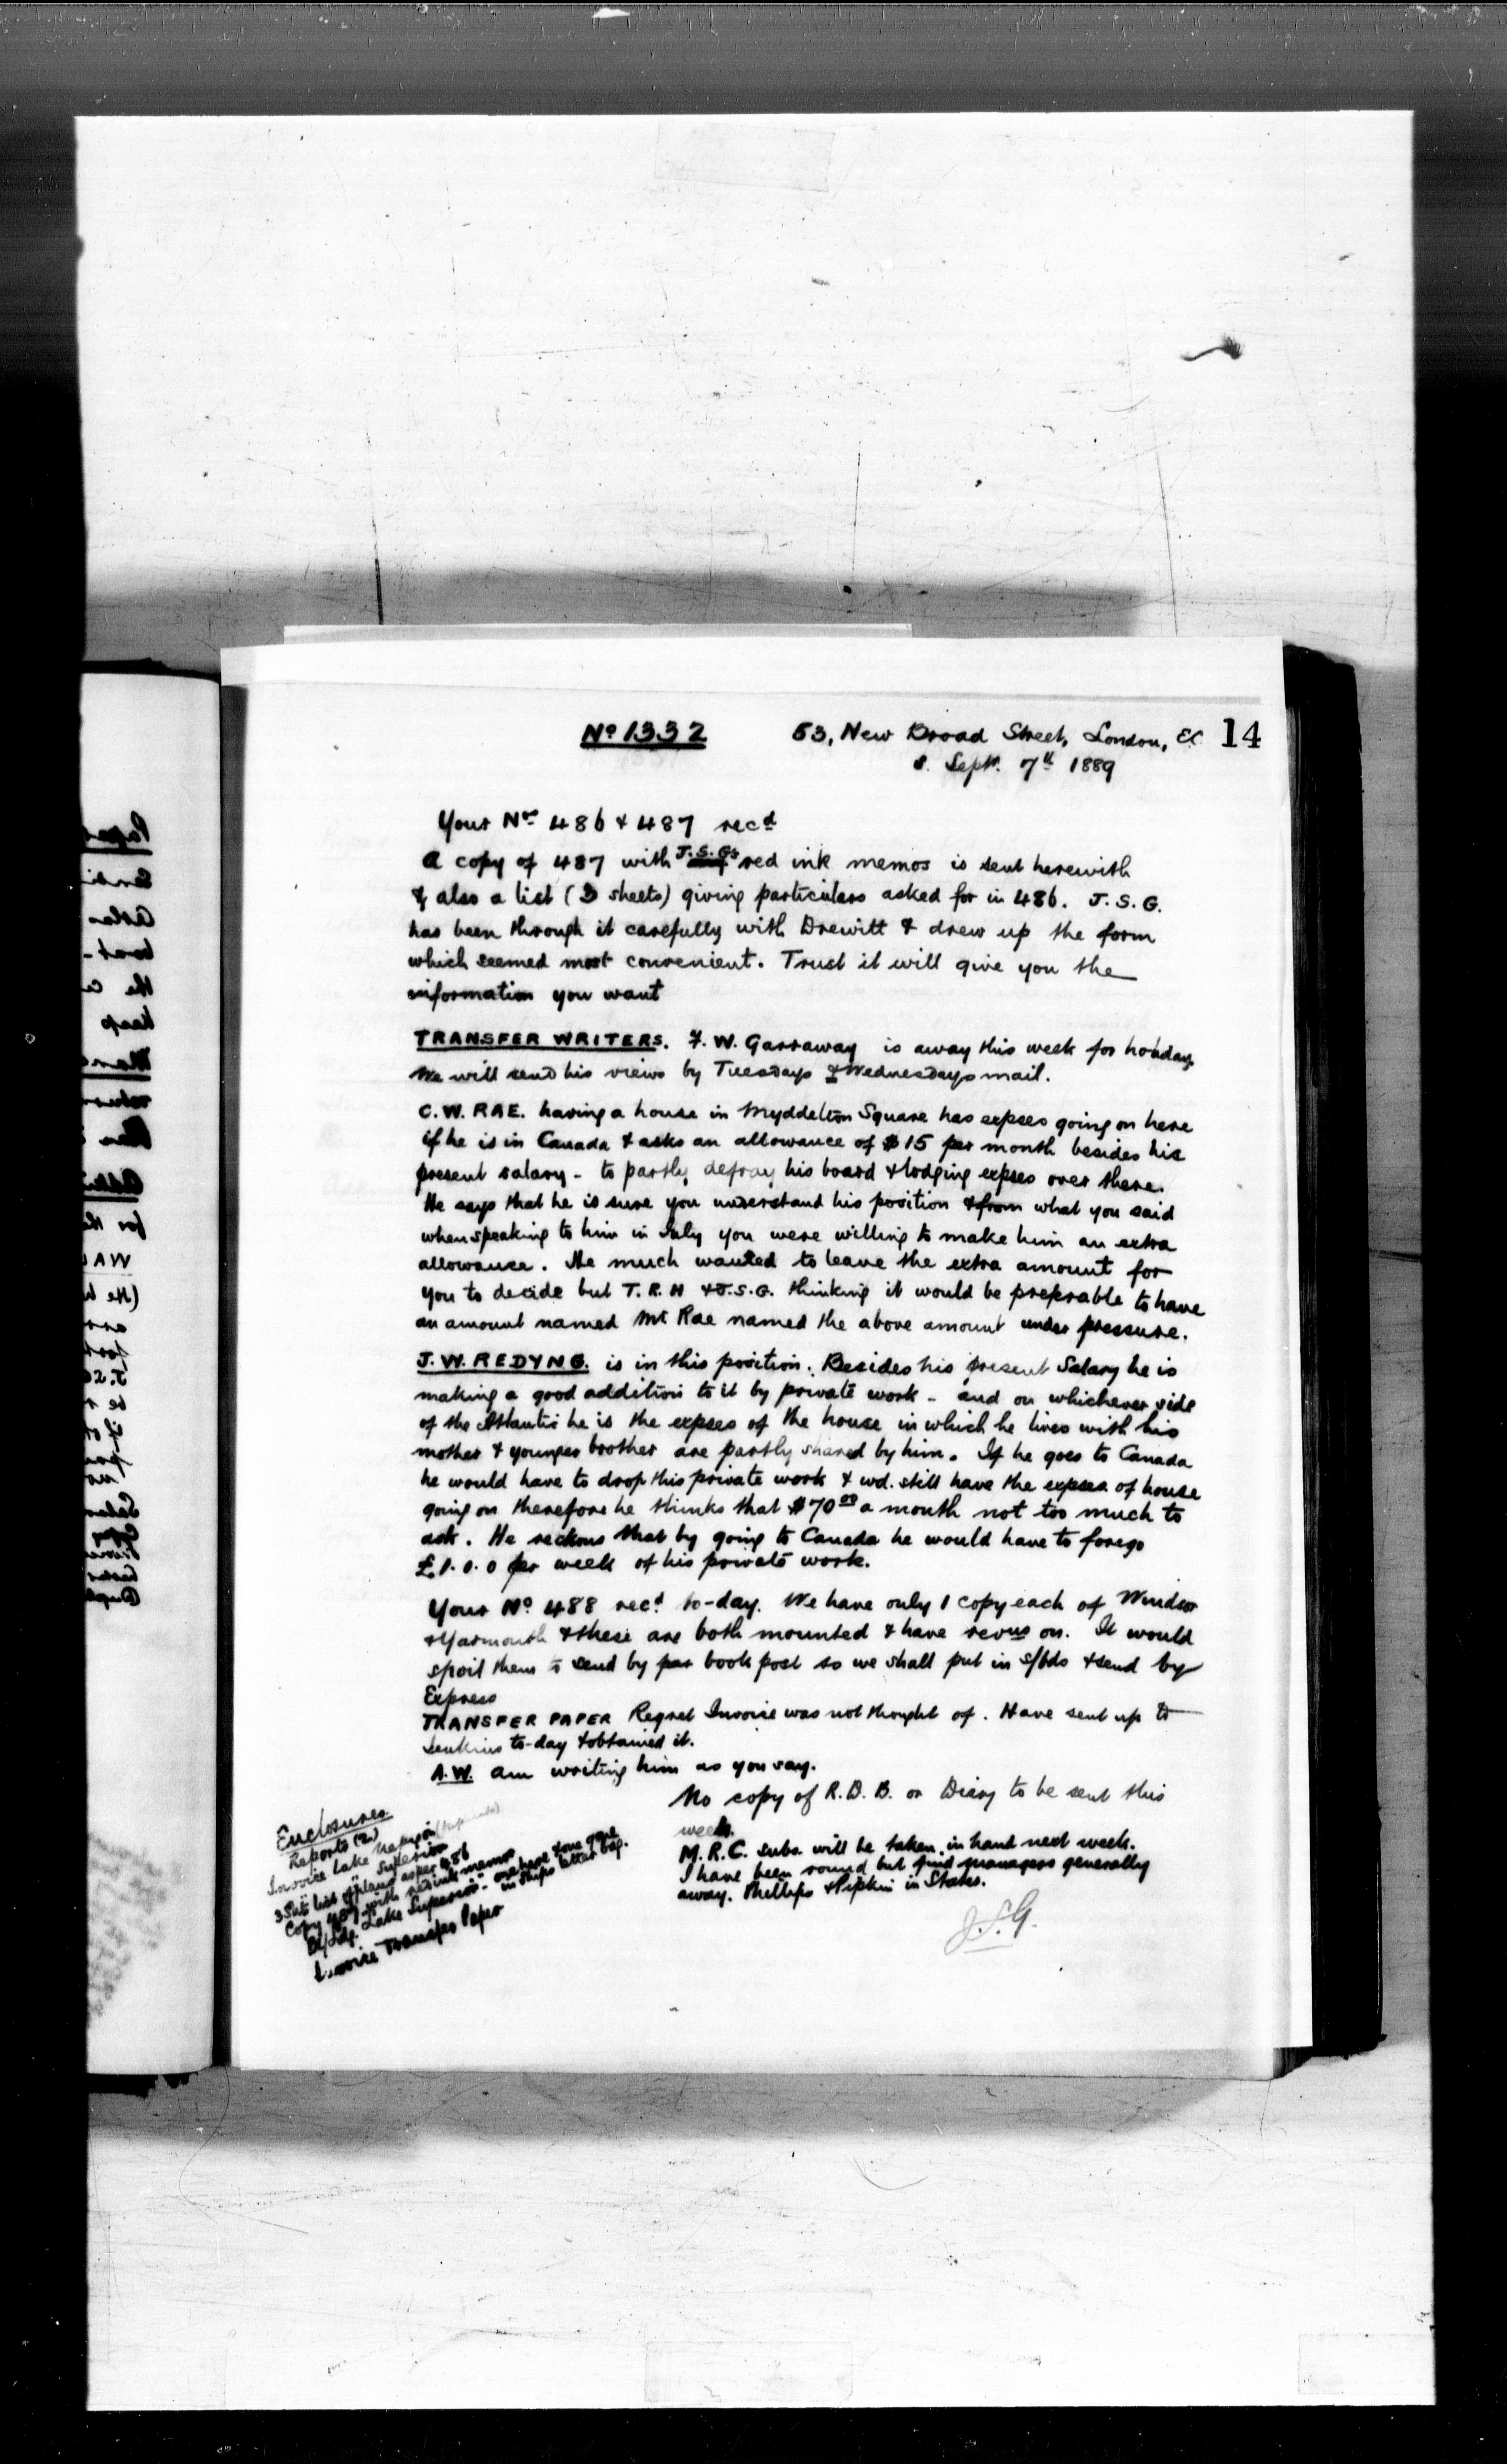 No 1332
53, New Broad Street, London, EC
14
S. Sept. 7th 1889
Your Nos 486 & 487 recd
A copy of 487 with J.S.G's red ink memos is sent herewith
& also a list (3 sheets) giving particulars asked for in 486. J.S.G.
has been through it carefully with Drewitt & drew up the form
which seemed most convenient. Trust it will give you the
information you want
TRANSFER WRITERS. F. W. Garraway is away this week for holiday
We will send his views by Tuesdays & Wednesdays mail.
C.W. RAE. having a house in Myddelton Square has expses going on here
if he is in Canada & asks an allowance of $15 per month besides his
present salary - to partly defray his board & lodging expses over there.
He says that he is sure you understand his position & from what you said
when speaking to him in July you were willing to make him an extra
allowance. He much wanted to leave the extra amount for
you to decide but T.R.H & J.S.G. thinking it would be preferable to have
an amount named Mr Rae named the above amount under pressure.
J.W. REDYNG. is in this position. Besides his present Salary he is
making a good addition to it by private work - and on whichever side
of the Atlantic he is the expses of the house in which he lives with his
mother & younger brother are partly shared by him. If he goes to Canada
he would have to drop this private work & wd. still have the expses of house
going on therefore he thinks that $70.00 a month not too much to
ask. He reckons that by going to Canada he would have to forego
£1.0.0 per week of his private work.
Your No 488 recd to-day. We have only 1 copy each of Windsor
& Yarmouth & these are both mounted & have revns on. It would
spoil them to send by par book post so we shall put in s/bds & send by
Express
TRANSFER PAPER Regret Invoice was not thought of. Have sent up to
Jenkins to-day & obtained it.
A.W. am writing him as you say.
No copy of R.D.B. or Diary to be sent this
week.
M.R.C. subs. will be taken in hand next week.
I have been round but find managers generally
away. Phillips & Pipkin in States.
J.S.G.
Enclosures
Reports (2)
Invoice Lake Nepigon
" " Superior
3 Shts list of plans as per 486
Copy 487 with red ink memos
Bl/Ldg. Lake Superior - one here & one gone
in ships letter bag.
Invoice Transfer Paper